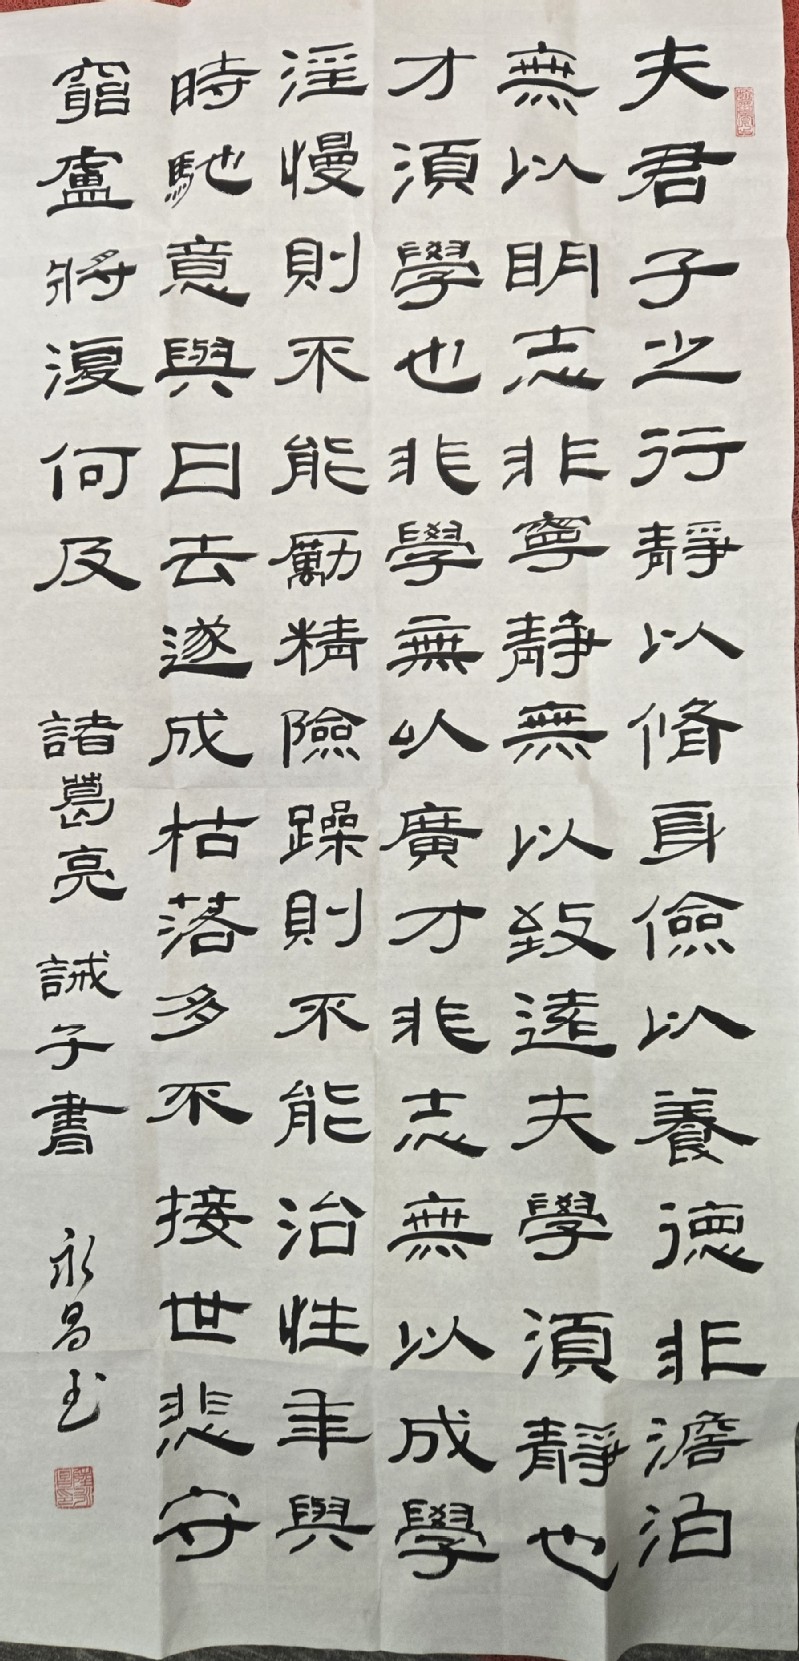 夫君子之行靜以脩身儉以養德非澹泊
無以明志非寧靜無以致遠夫學須靜也
才須學也非學無以廣才非志無以成學
淫慢則不能勵精險躁則不能治性年與
時馳意與日去遂成枯落多不接世悲守
窮廬將復何及
諸葛亮 誡子書
永昌书